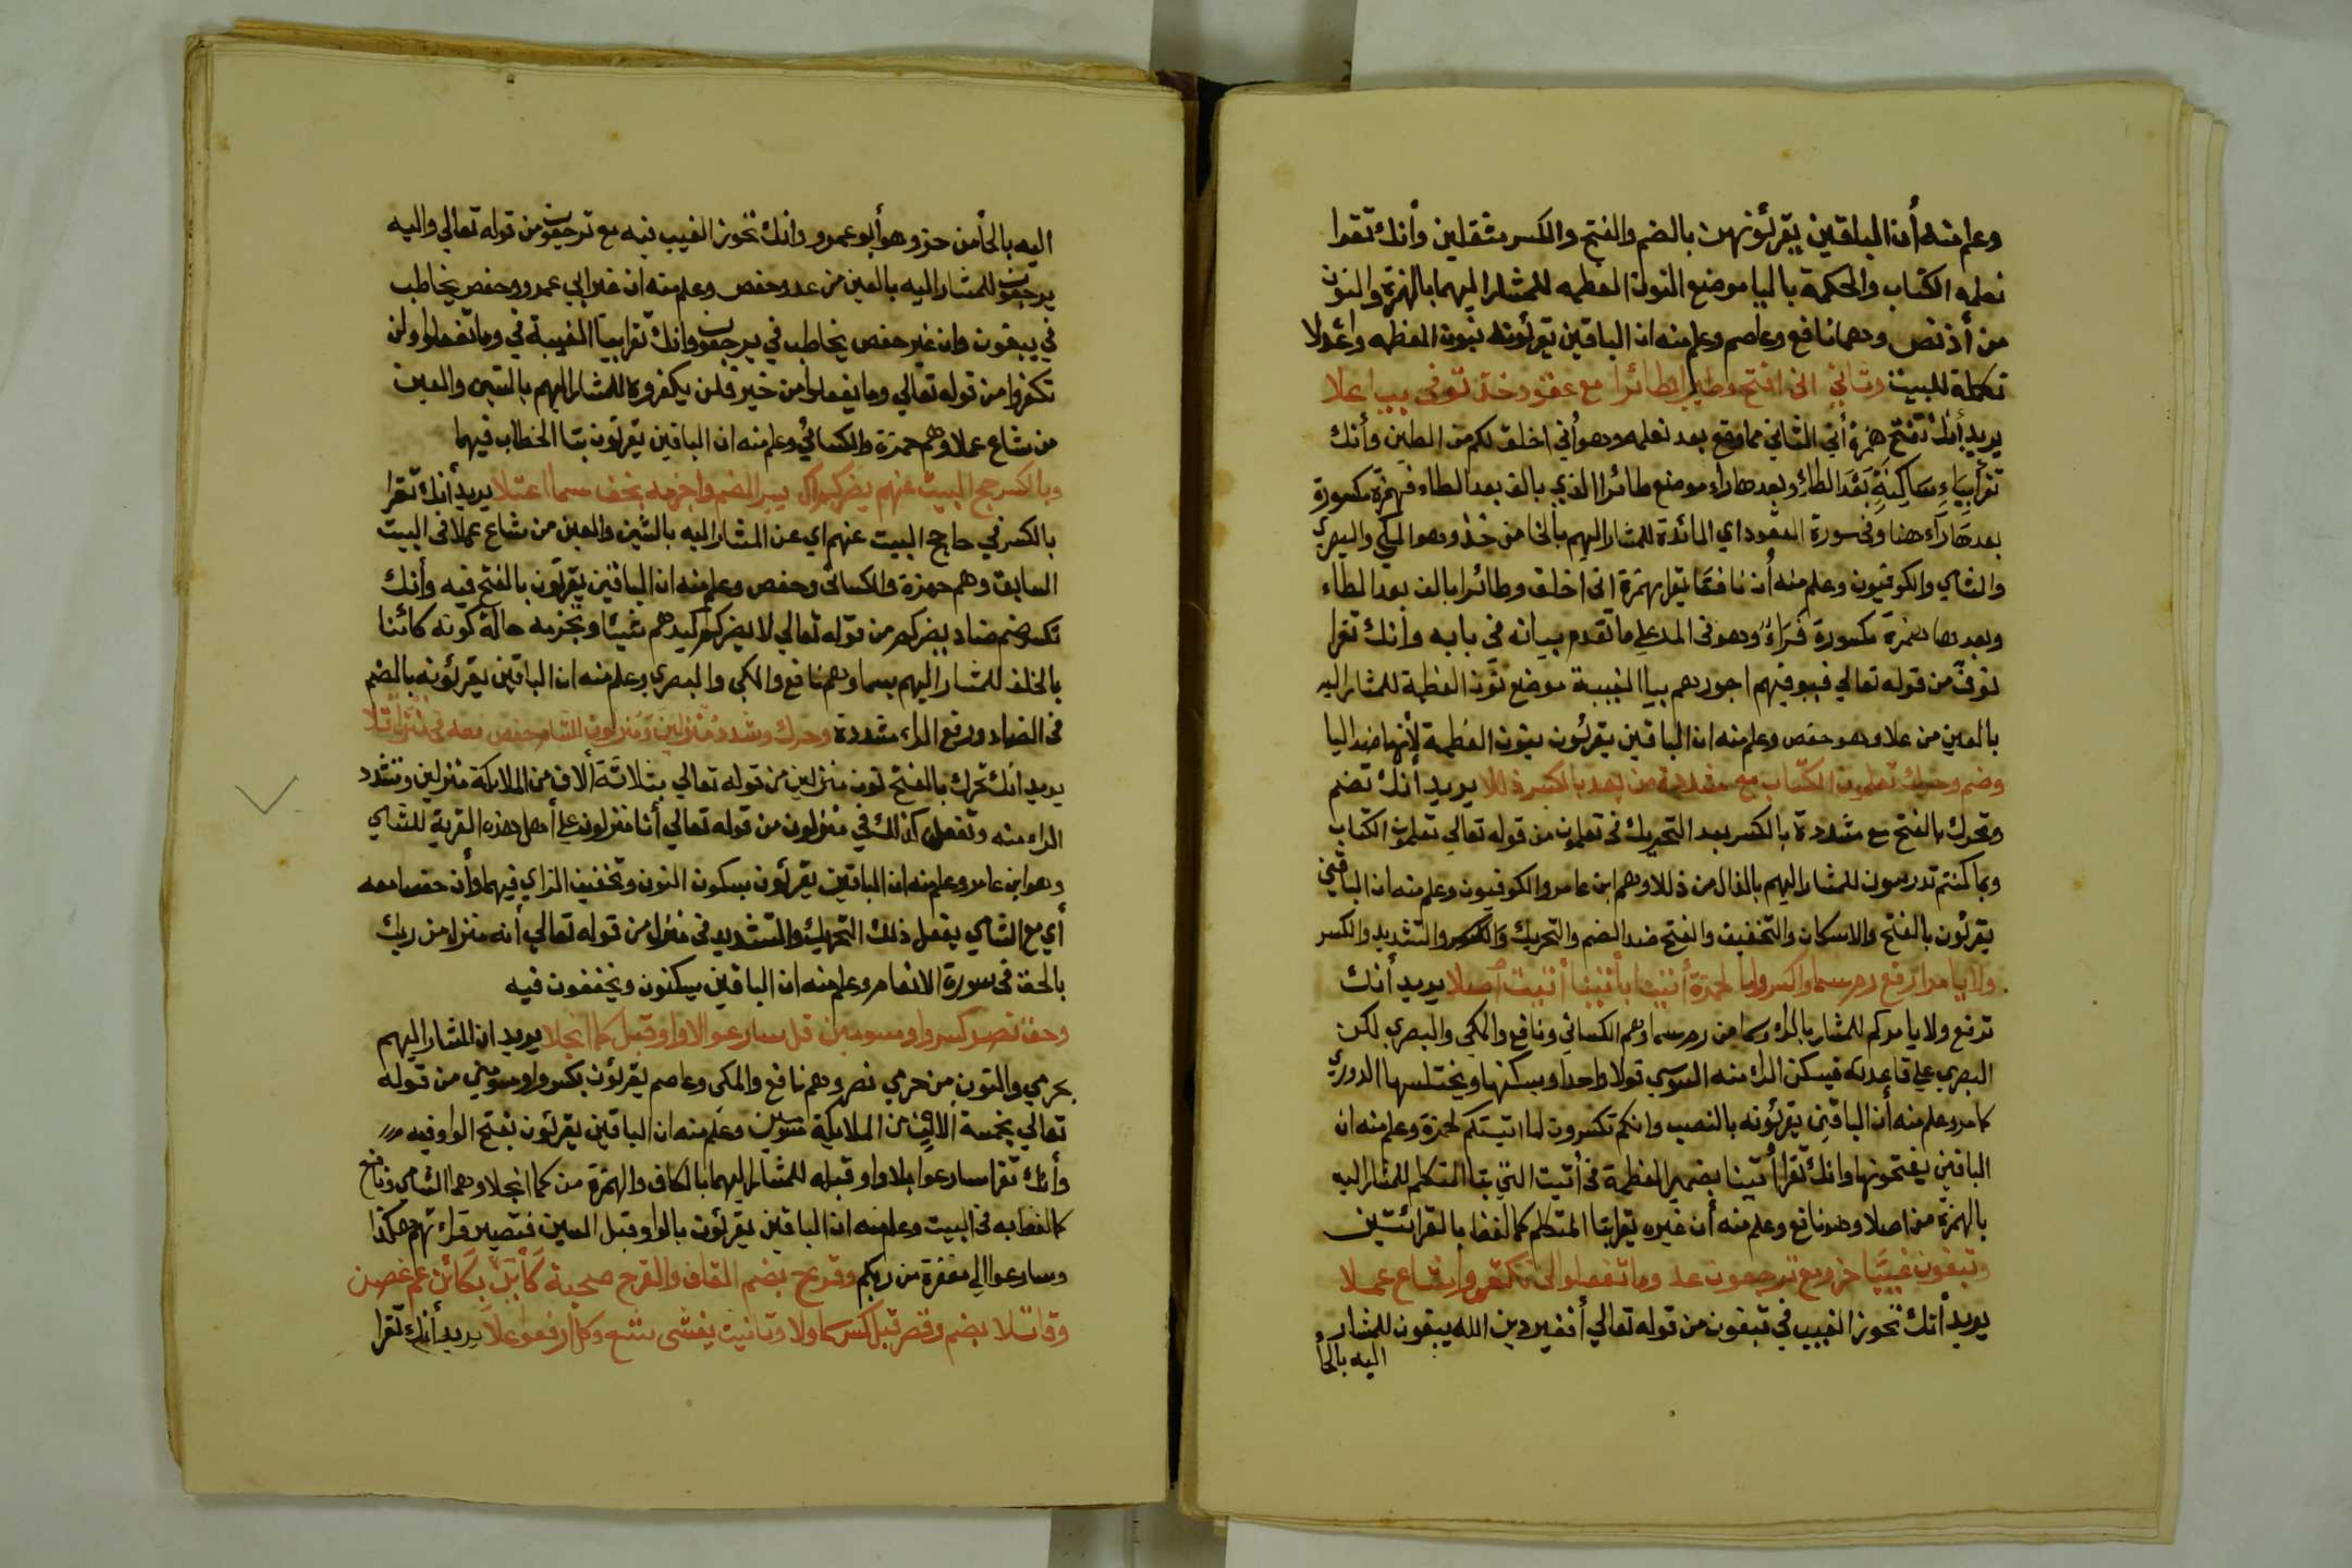 وعلم منه أن الباقين يقرئونهن بالضم والفتح والكسر مثقلين وأنك تقرا
نعلمه الكتاب والحكمة باليا موضع النون العظمه للمشار اليهما بالهمزة والنون
من أذ نص وهما نافع وعاصم وعلم منه ان الباقين يقرئونه بنون العظمه
تكملة للبيت وثاني اني افتح وطيرا بطائرا مع عقود خذ نوفي بيا علا
يريد أنك تفتح همزة أني الثاني مما وقع بعد نعلمه وهو أني اخلق لكم من الطين وأنك
تقرأ بياء ساكنة بعد الطاء وبعدها راء موضع طائرا الذي بالف بعد الطاء فهمزة مكسورة
بعدها راء هنا وفي سورة العقود اي المائدة للمشار اليهم بالخا من خذ وهو المكي والبصري
والشامي والكوفيون وعلم منه أن نافعا يقرا بهمزة اني اخلق وطائرا بالف بعد الطاء
وبعدها همزة مكسورة فراء وهو في المد علي ما تقدم بيانه في بابه وأنك تقرا
نوفي من قوله تعالي فيوفيهم اجورهم بيا الغيبة موضع نون العظمة للمشار اليه
بالعين من علا وهو حفص وعلم منه ان الباقين يقرئون بنون العظمة لأنها ضد اليا
وضم وحرك تعلمون الكتاب مع مشددة من بعد بالكسر ذللا يريد أنك تضم
وتحرك بالفتح مع مشددة بالكسر بعد التحريك في تعلمون من قوله تعالي تعلمون الكتاب
وبما كنتم تدرسون للمشار اليهم بالذال من ذللا وهم ابن عامر والكوفيون وعلم منه ان الباقين
يقرئون بالفتح والاسكان والتخفيف والفتح ضد الضم والتحريك والكسر والتشديد والكسر
ولا يامر ارفع رم سما واكسر ولما لحمزة أتينا بأتينا أتيت اصلا يريد أنك
ترفع ولا يامركم للمشار بالراء وسما من رم سما وهم الكسائي ونافع والمكي والبصري لكن
البصري علي قاعدته فيسكن الراء منه السوسي قولا واحدا ويسكنها ويختلسها الدوري
كما مر وعلم منه أن الباقين يقرئونه بالنصب وانكم تكسرون لما اتيتكم لحمزة وعلم منه ان
الباقين يفتحونها وانك تقرا أتينا بضمير العظمة في أتيت التي بتا المتكلم للمشار اليه
بالهمزة من اصلا وهو نافع وعلم منه أن غيره يقرا بتا المتكلم كما لفظ بالقرائتين
وتبغون غيبا حز ومع ترجعون علا وما تفعلوا لن تكفروا شاع عملا
يريد أنك تحوز الغيب في تبغون من قوله تعالي أفغير دين الله يبغون للمشار
اليه بالحأ
اليه بالحأ من حز وهو أبو عمرو وانك تحوز الغيب فيه مع ترجعون من قوله تعالي واليه
يرجعون للمشار اليه بالعين من علا وحفص وعلم منه ان غير ابي عمرو وحفص يخاطب
في يبغون وان غير حفص يخاطب في يرجعون وانك تقرا بيا الغيبة في وما تفعلوا ولن
تكفروا من قوله تعالي وما يفعلوا من خير فلن يكفروه للمشار اليهم بالشين والعين
من شاع عملا وهم حمزة والكسائي وعلم منه ان الباقين يقرئون بتا الخطاب فيهما
وبالكسر حج البيت عنهم يضركم اكسر الضم واجزمه بخف سما اعتلا يريد أنك تقرا
بالكسر في حا حج البيت عنهم اي عن المشار اليه بالشين والعين من شاع عملا في البيت
السابق وهم حمزة والكسائي وحفص وعلم منه ان الباقين يقرئون بالفتح فيه وأنك
تكسر ضم ضاد يضركم من قوله تعالي لا يضركم كيدهم شيئا وتجزمه حالة كونه كائنا
بالخلف للمشار اليهم بسما وهم نافع والمكي والبصري وعلم منه ان الباقين يقرئونه بالضم
في الضاد ورفع الراء مشددة وحرك وشدد منزلين ومنزلون للشام حفص معه في
يريد أنك تحرك بالفتح نون منزلين من قوله تعالي بثلاثة ألاف من الملائكة منزلين وتشدد
الزاء منه وتفعل كذلك في منزلون من قوله تعالي أنا منزلون علي أهل هذه القرية للشامي
وهو ابن عامر وعلم منه ان الباقين يقرئون بسكون النون وتخفيف الزاي فيهما وأن حفصا معه
أي مع الشامي يفعل ذلك التحريك والتشديد في منزل من قوله تعالي أنه منزل من ربك
بالحق في سورة الانعام وعلم منه ان الباقين يسكنون ويخففون فيه
وحق نصير كسر واو مسومين قل سارعوا لا واو قبل كما انجلا يريد ان المشار اليهم
بحرمي والنون من حرمي نصر وهم نافع والمكي وعاصم يقرئون بكسر واو مسومين من قوله
تعالي بخمسة الاف من الملايكة مسومين وعلم منه ان الباقين يقرئون بفتح الواو فيه
وأنك تقرا سارعوا بلا واو قبله للمشار اليهما بالكاف والهمزة من كما انجلا وهما الشامي ونافع
كما لفظ به في البيت وعلم منه ان الباقين يقرئون بالواو قبل السين فتصير قراءتهم هكذا
وسارعوا الي مغفرة من ربكم وقرح بضم القاف والقرح صحبة كأين بكائن عم غصن
وقاتلا بضم وقصر قبل كسر كما ولا وتأنيث يغشى شع وكل ارفعوا علا يريد أنك تقرا